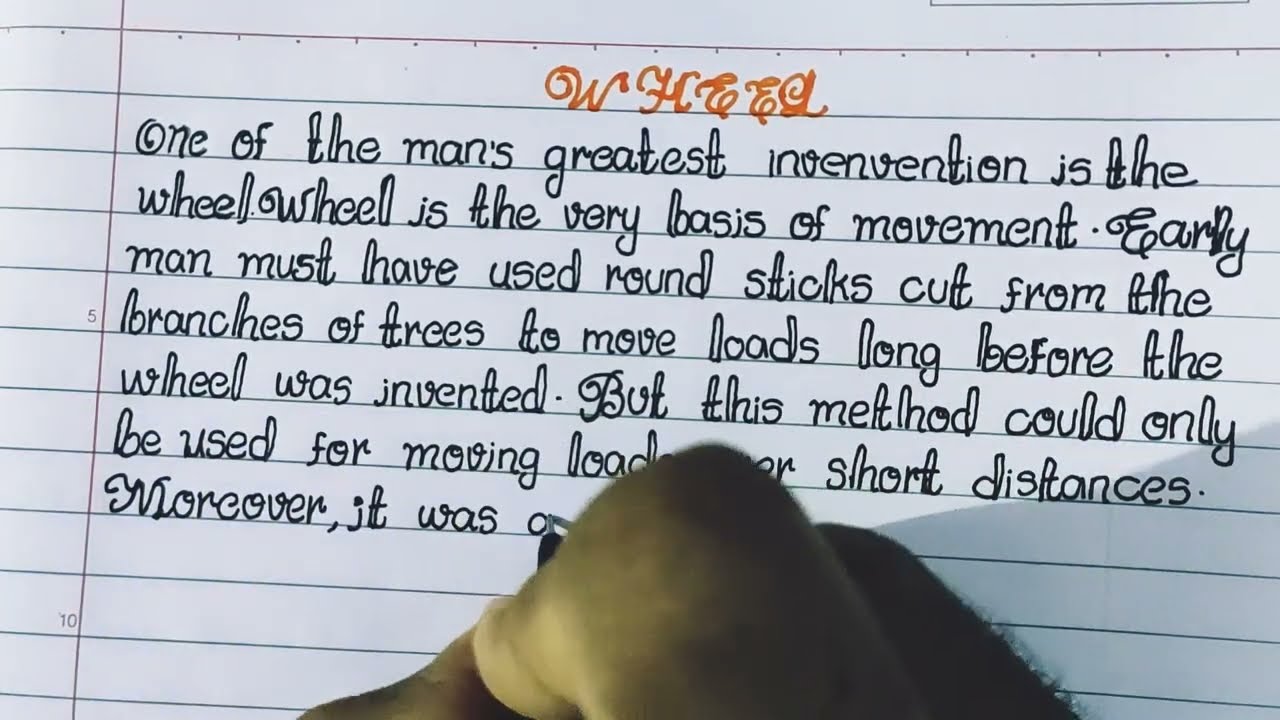 WHEEL
One of the man's greatest invenvention is the
wheel. Wheel is the very basis of movement. Early
man must have used round sticks cut from the
5 branches of trees to move loads long before the
wheel was invented. But this method could only
be used for moving short distances.
Moreover, it was
10